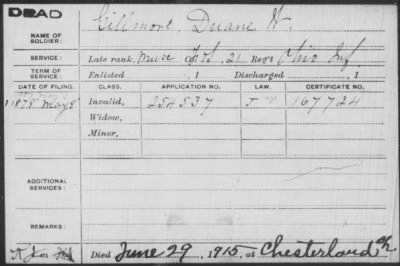 DEAD
NAME OF SOLDIER: Gillmore, Duane W.
SERVICE: Late rank, Musc F&S, 21 Reg't Ohio Inf
TERM OF SERVICE: Enlisted , 1 Discharged , 1
DATE OF FILING. CLASS. APPLICATION NO. LAW. CERTIFICATE NO.
1878 May 8 Invalid, 254537 167724
Widow,
Minor,
ADDITIONAL SERVICES:
REMARKS:
Died June 29, 1915, at Chesterland